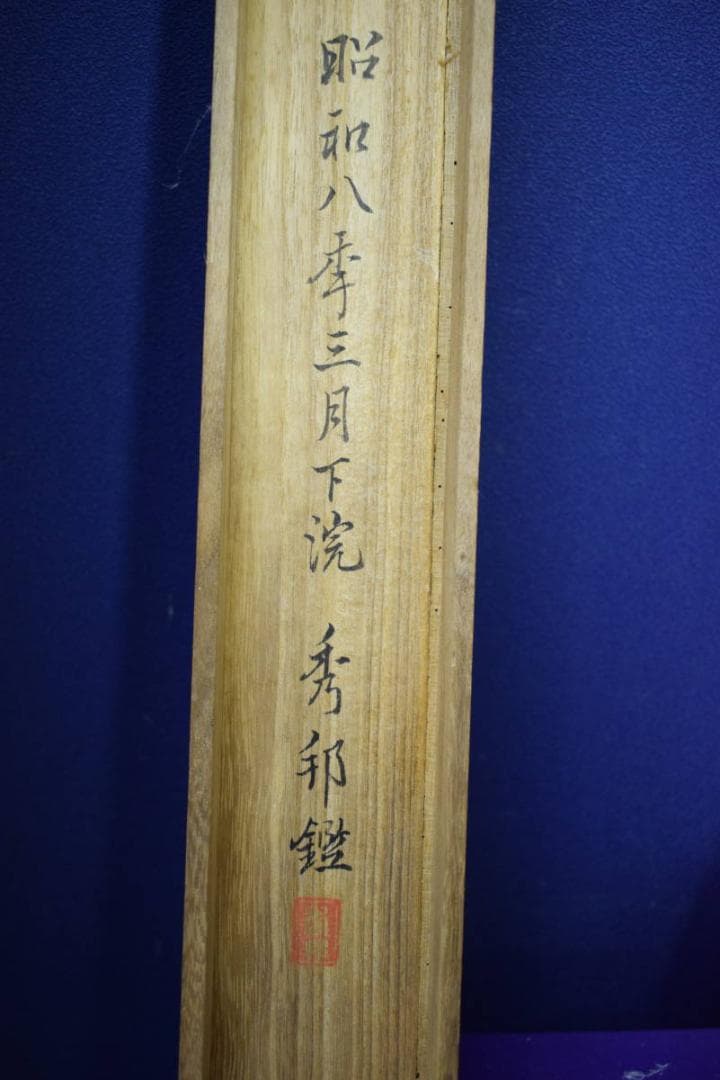 昭和八季三月下浣 秀邦鑑